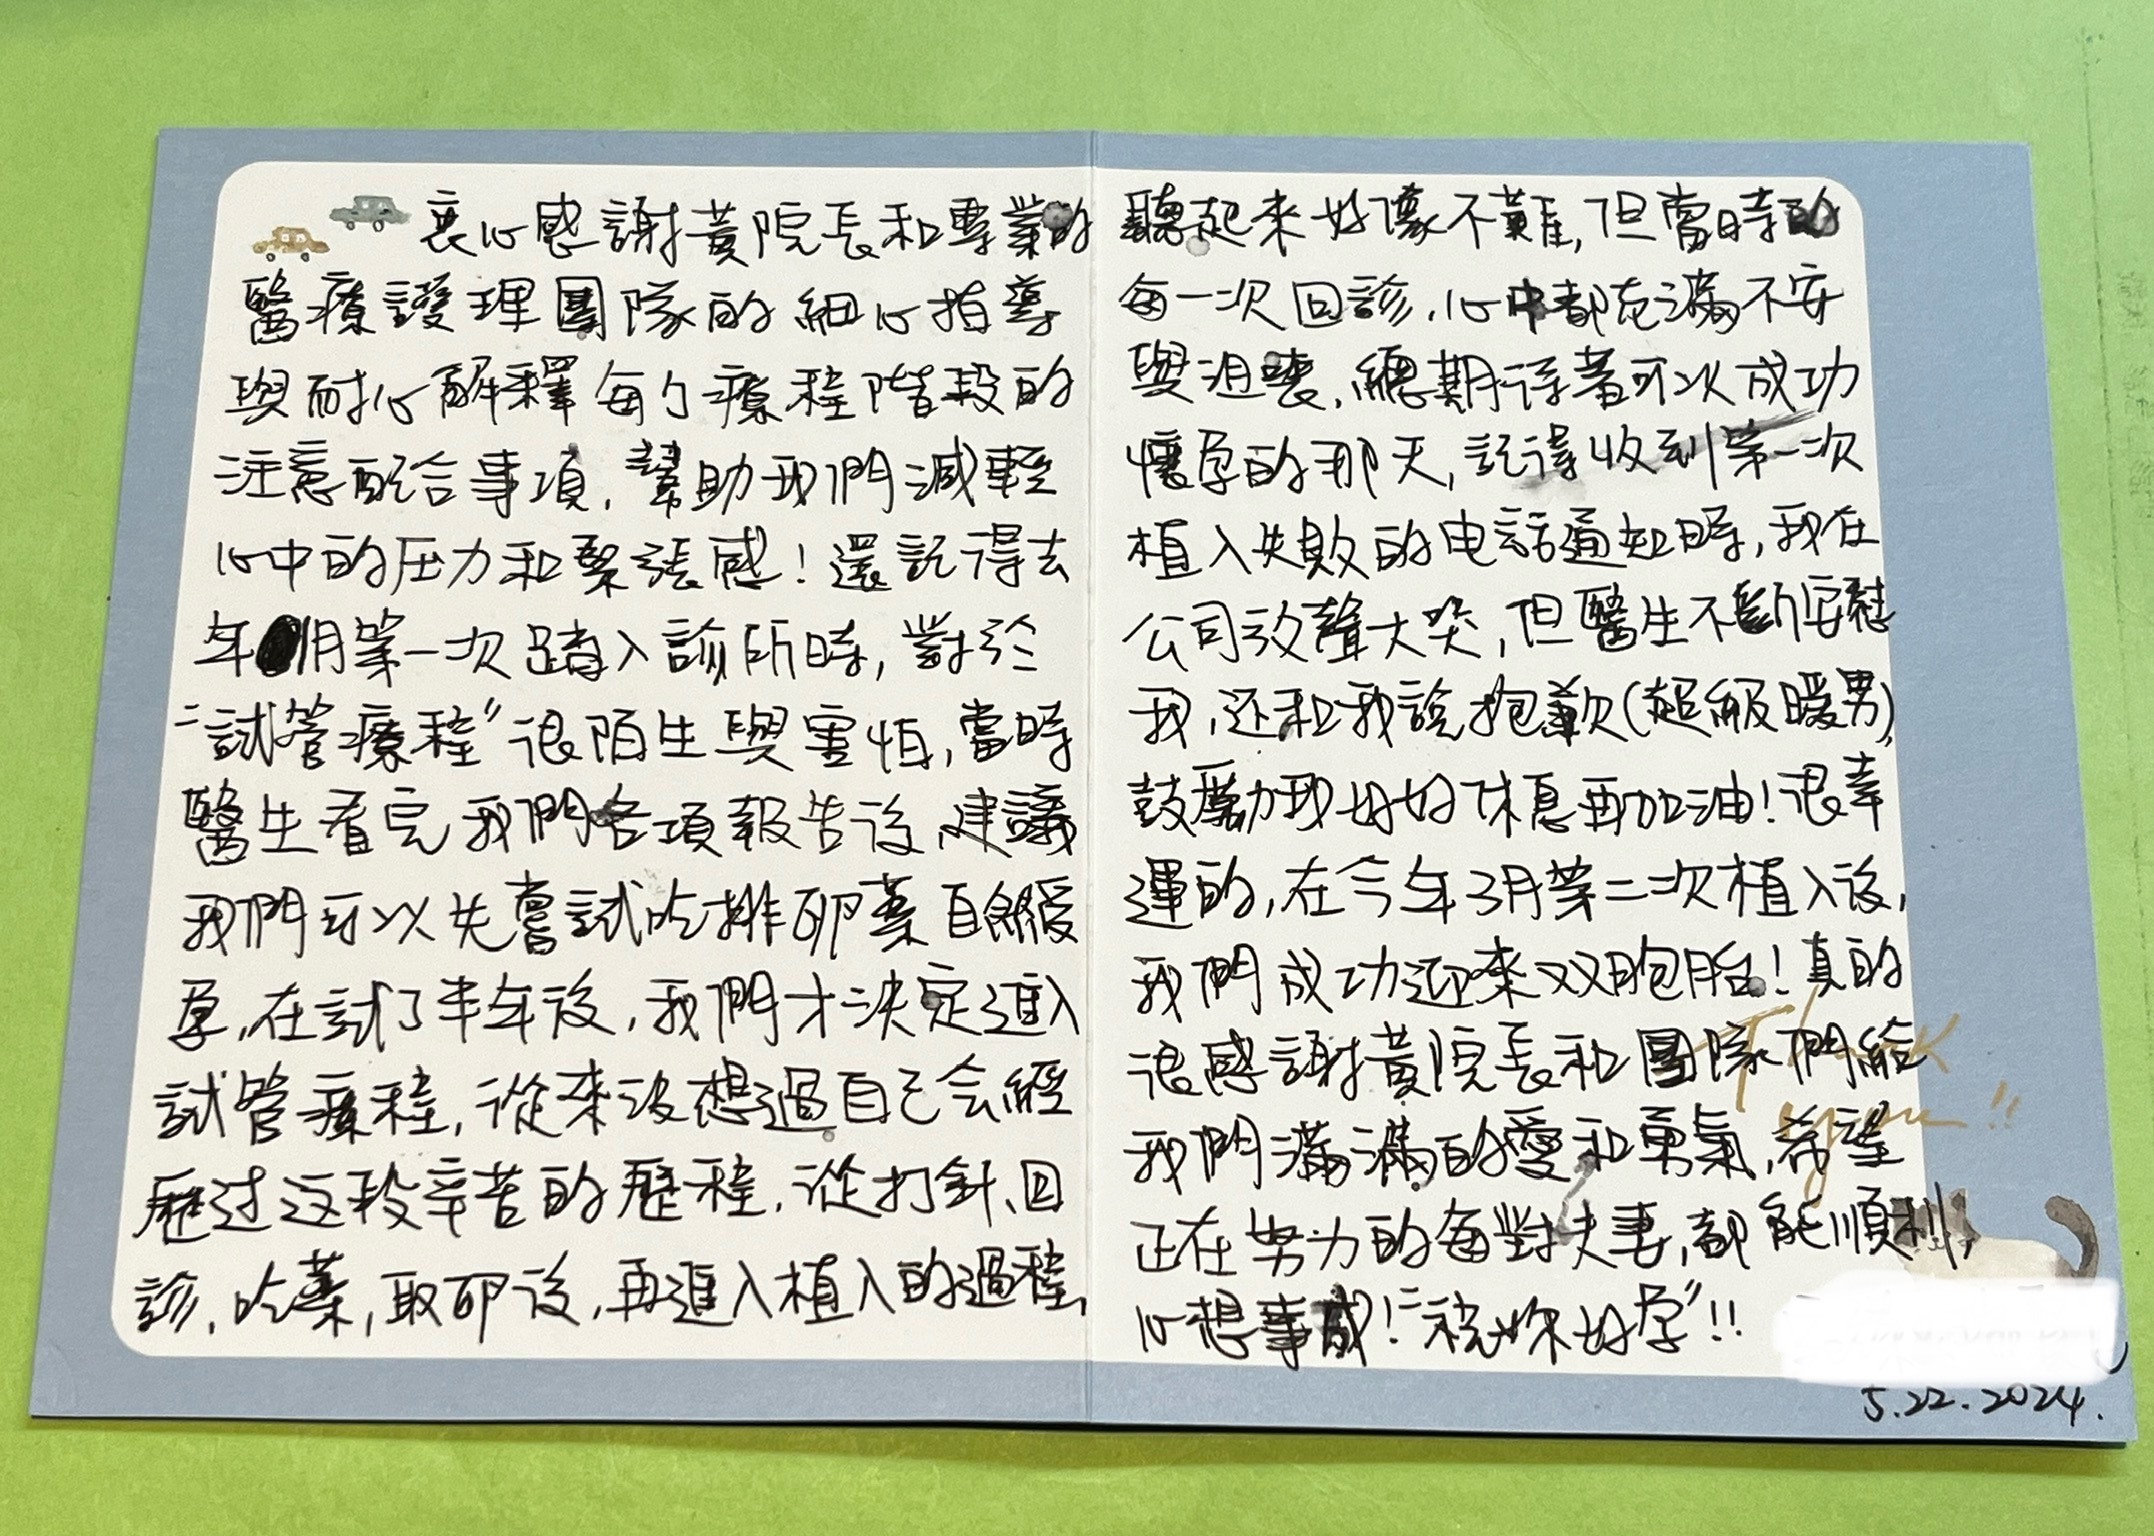 衷心感謝黃院長和專業的
醫療護理團隊的細心指導
與耐心解釋每个療程階段的
注意配合事項，幫助我們減輕
心中的压力和緊張感！還記得去
年1月第一次踏入診所時，對於
“試管療程”很陌生與害怕，當時
醫生看完我們各項報告後，建議
我們可以先嘗試吃排卵藥自然受
孕，在試了半年後，我們才決定進入
試管療程，從來沒想過自己会經
歷过这段辛苦的歷程，從打針、回
診、吃藥，取卵後，再進入植入的過程，
聽起來好像不難，但當時的
每一次回診，心中都充滿不安
與沮喪，總期待著可以成功
懷孕的那天，記得收到第一次
植入失敗的电話通知時，我在
公司放聲大哭，但醫生不斷安慰
我，还和我說抱歉(超級暖男)，
鼓勵我好好休息再加油！很幸
運的，在今年3月第二次植入後，
我們成功迎來双胞胎！真的
很感謝黃院長和團隊們給
我們滿滿的愛和勇氣，希望
正在努力的每對夫妻，都能順利，
心想事成！“祝妳好孕”!!
Thank
you!!
5.22.2024.